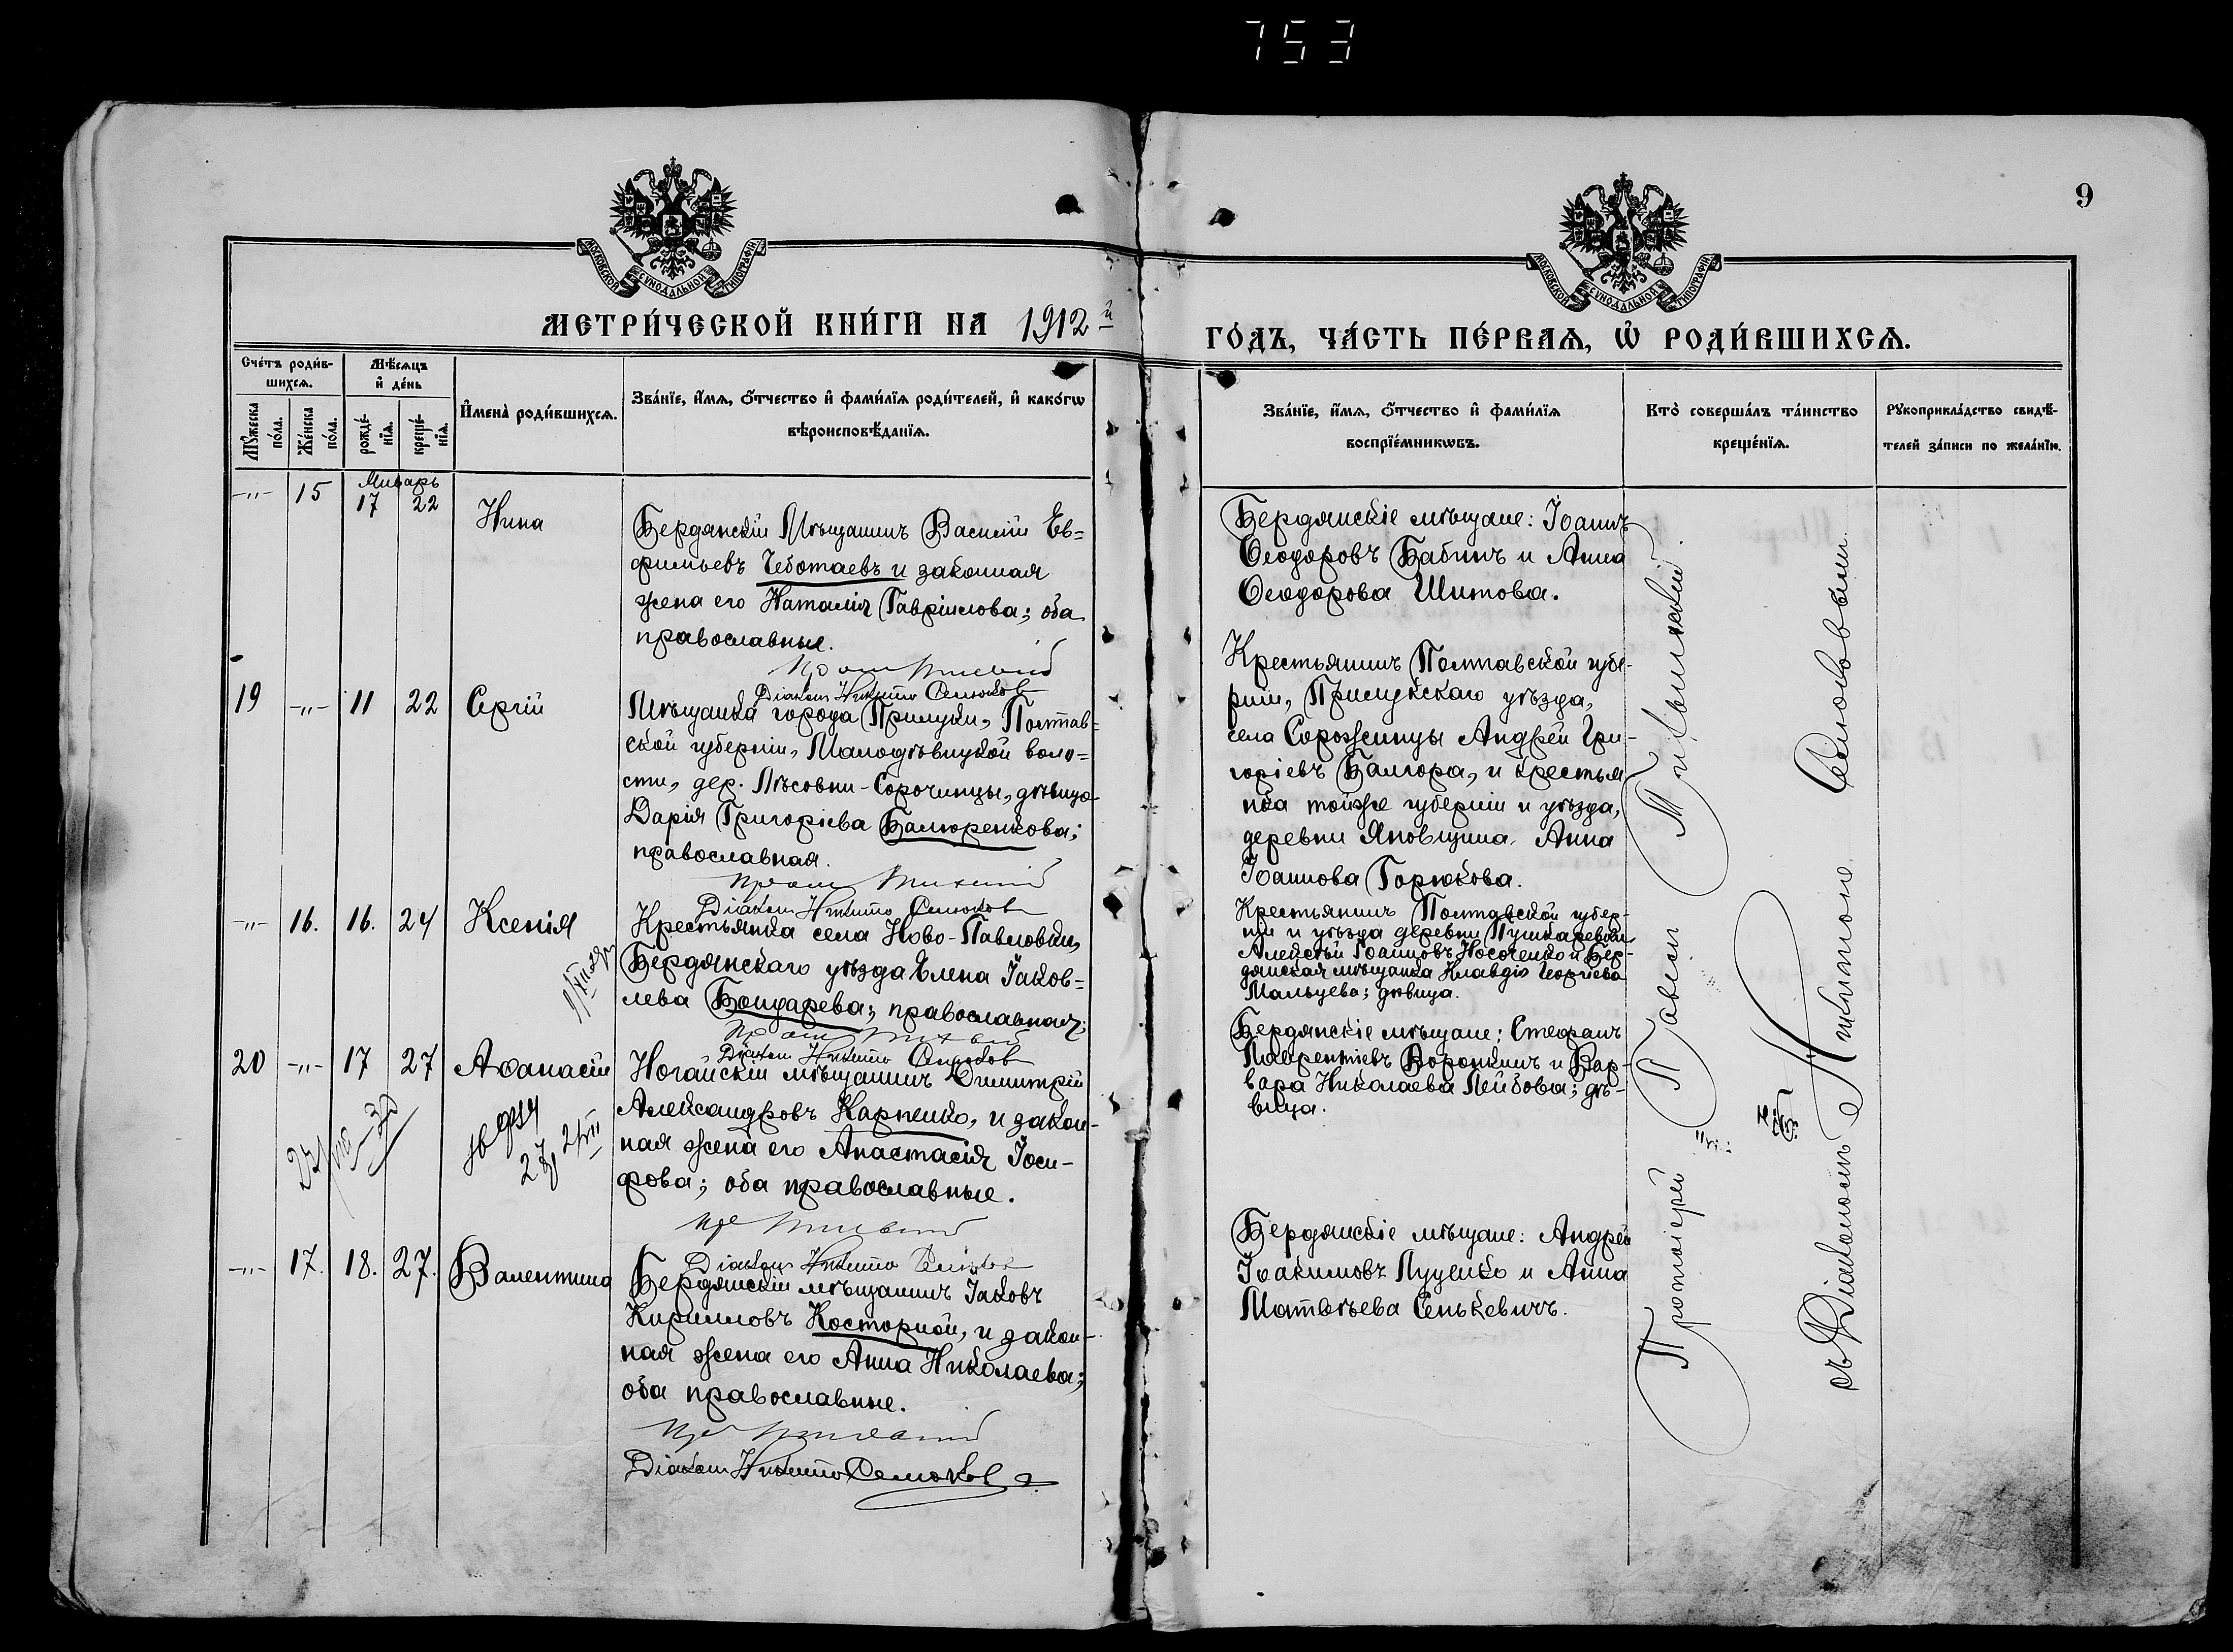 753
9
МОСКОВСКОЙ СѴНОДАЛЬНОЙ ТИПОГРАФІИ
МОСКОВСКОЙ СѴНОДАЛЬНОЙ ТИПОГРАФІИ
МЕТРИ́ЧЕСКОЙ КНИ́ГИ НА 1912й
ГО́ДЪ, ЧА́СТЬ ПЕ́РВАѦ, Ѽ РОДИ́ВШИХСѦ.
Сче́тъ роди́в-
шихсѧ.
Мѣ́сѧцъ
и҆ де́нь
Мꙋ́жеска
по́ла.
Же́нска
по́ла.
рожде́-
нїѧ.
креще́-
нїѧ.
И҆мена̀ роди́вшихсѧ.
Зва́нїе, и҆́мѧ, ѻ҆́тчество и҆ фами́лїѧ роди́телей, и҆ како́гѡ
вѣроисповѣ́данїѧ.
Зва́нїе, и҆́мѧ, ѻ҆́тчество и҆ фами́лїѧ
воспрїе́мникѡвъ.
Кто̀ соверша́лъ та́инство
креще́нїѧ.
Рꙋкоприкла́дство свидѣ́-
телей за́писи по жела́нїю.
Январь
-"- 15 17 22 Нина
Бердянскій Мѣщанинъ Василій Ев=
фимьевъ Чеботаевъ и законная
жена его Наталія Гавріилова; оба
православные.
Діаконъ Никита Семоков
Бердянскіе мѣщане: Іоаннъ
Ѳеодоровъ Бабинъ и Анна
Ѳеодорова Шитова.
19 -"- 11 22 Сергій
Мѣщанка города Прилуки, Полтав-
ской губерніи, Малодѣвицкой воло=
сти, дер. Лѣсовки-Сорочинцы, дѣвица
Дарія Григоріева Балюренкова;
православная.
Діаконъ Никита Семоков
Крестьянинъ Полтавской губе-
рніи, Прилукскаго уѣзда,
села Сорожинцы Андрей Гри-
горіевъ Балюра, и крестья
нка тойже губерніи и уѣзда,
деревни Яновщина, Анна
Іоаннова Горюкова.
-"- 16. 16. 24 Ксенія
Крестьянка села Ново-Павловки,
Бердянскаго уѣзда Елена Іаков=
лева Бондарева; православная;
Діаконъ Никита Семоков
Крестьянинъ Полтавской губер-
ніи и уѣзда деревни Пушкаревки
Алексѣй Іоанновъ Носоченко и Бер-
дянская мѣщанка Клавдія Георгіева
Мальцева; дѣвица.
20 -"- 17 27 Аѳанасій
Ногайскій мѣщанинъ Димитрій
Александровъ Карпенко, и закон-
ная жена его Анастасія Іоси-
фова; оба православные.
Діаконъ Никита Семоков
Бердянскіе мѣщане: Стефанъ
Лаврентіевъ Воронкинъ и Вар-
вара Николаева Лейбова; дѣ-
вица.
-"- 17. 18. 27. Валентина
Бердянскій мѣщанинъ Іаковъ
Кирилловъ Косторной, и закон-
ная жена его Анна Николаева;
оба православные.
Діаконъ Никита Семоков
Бердянскіе мѣщане: Андрей
Іоакимовъ Луценко и Анна
Матвѣева Сенькевичъ.
Протоіерей Павелъ
съ Діакономъ Никитою Семоковымъ.